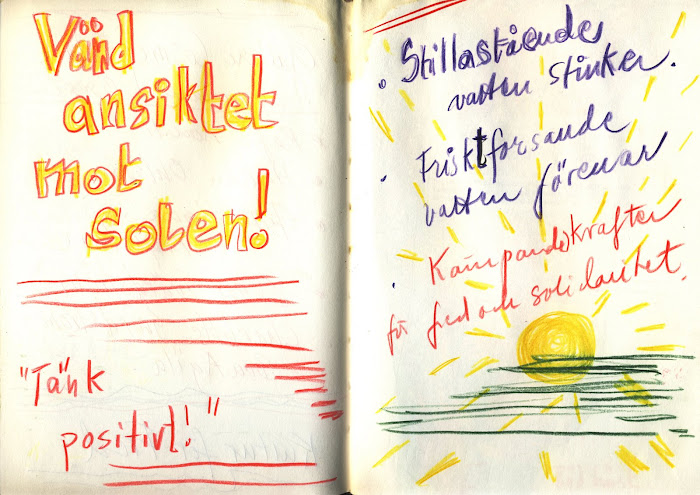 Vänd
ansiktet
mot
solen!
"Tänk
positivt!"
• Stillastående
vatten stinker.
• Friskt forsande
vatten förenar
• Kämpande krafter
för fred och solidaritet.